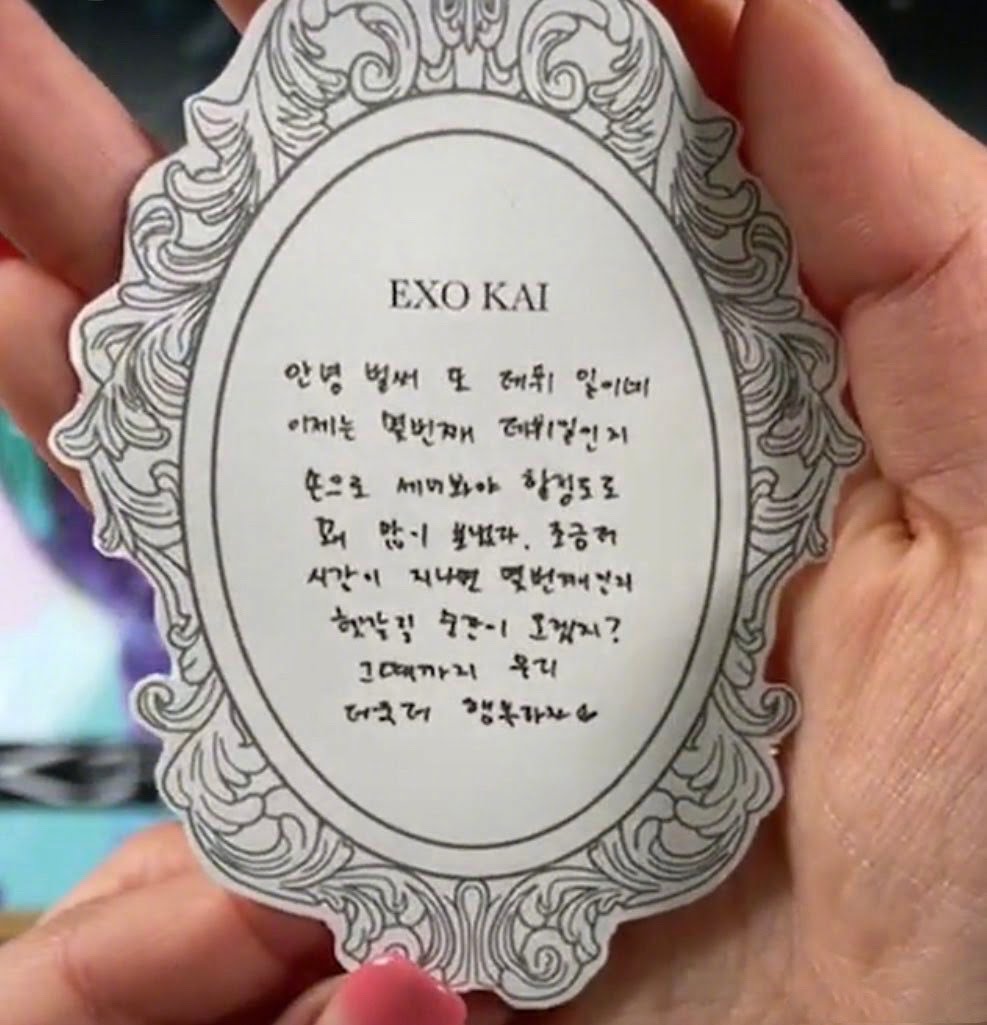 EXO KAI
안녕 벌써 또 데뷔 일이네
이제는 몇번째 데뷔일인지
손으로 세어봐야 할정도로
꽤 많이 보냈다. 조금더
시간이 지나면 몇번째인지
헷갈릴 순간이 오겠지?
그때까지 우리
더욱더 행복하자